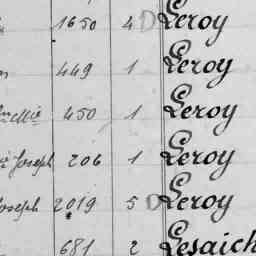 1650 4 D Leroy
449 1 Leroy
450 1 Leroy
Joseph 206 1 Leroy
Joseph 2019 5 D Leroy
681 2 Lesaich